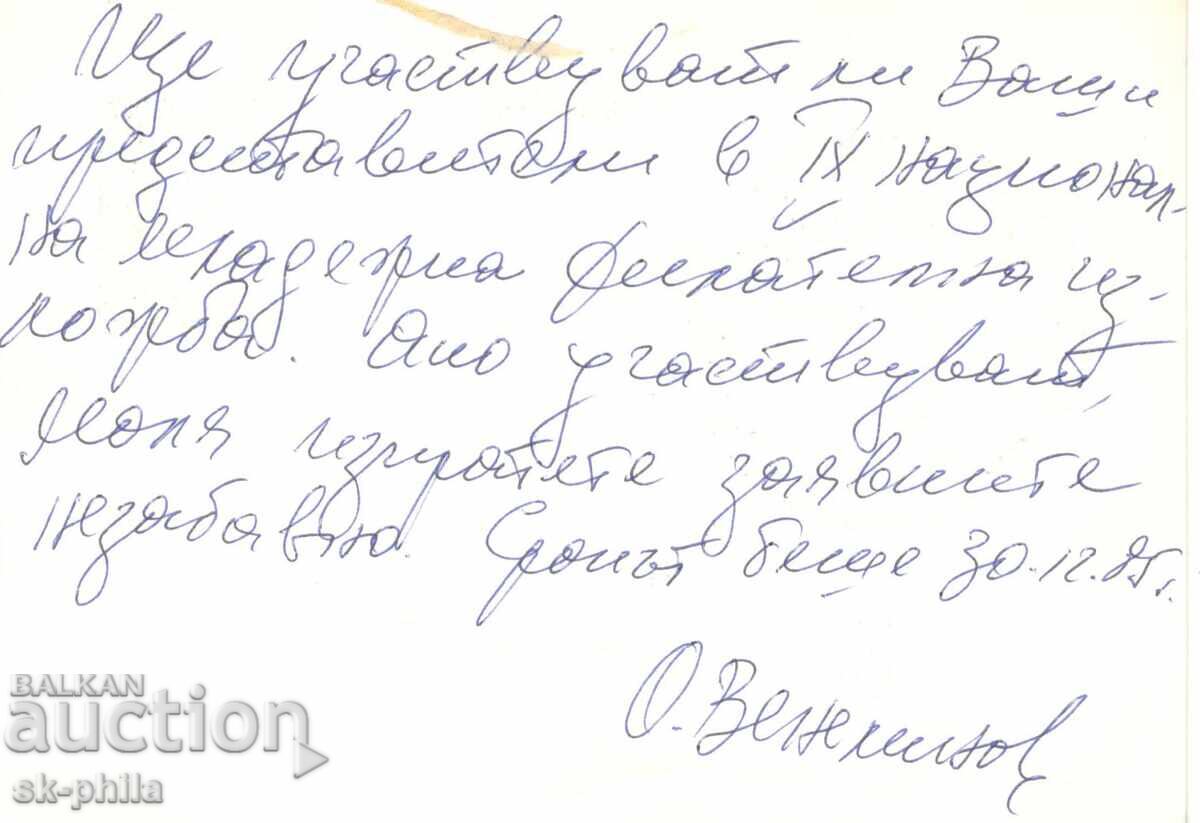 Ще участвуват ли Ваши
представители в IX национал-
на младежка филателна из-
ложба. Ако участвуват,
моля изпратете заявките
незабавно. Срокът беше 30.12.85г.
О.
BALKAN
auction
sk-phila